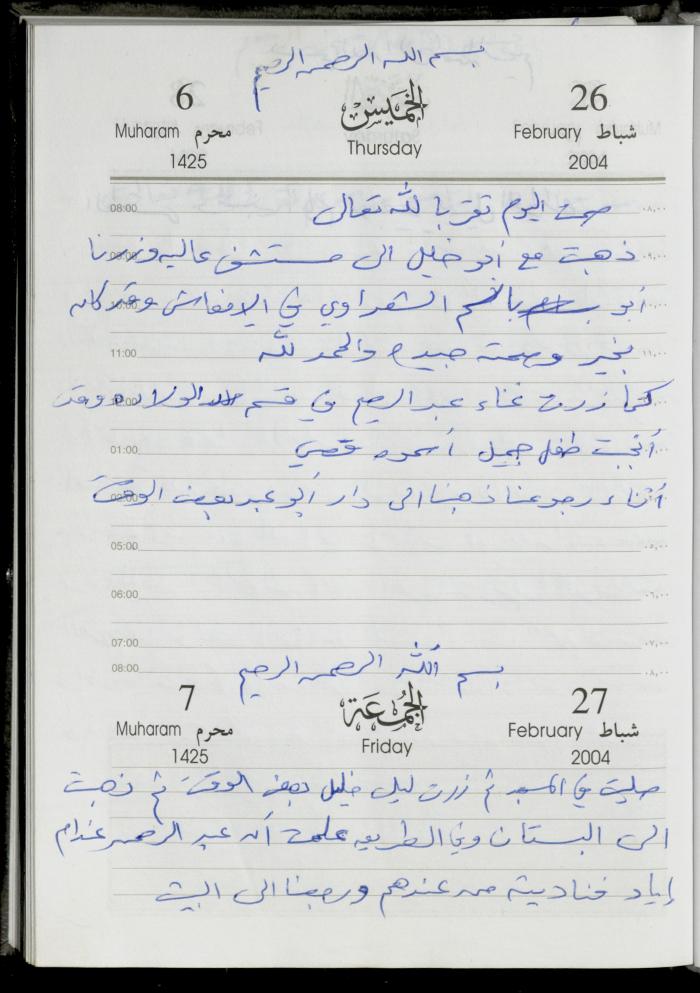 بسم الله الرحمن الرحيم
6 الخميس 26
Muharam محرم Thursday February شباط
1425 2004
08:00 صمت اليوم تقربا لله تعالى ٠٨,٠٠
09:00 ذهبت مع أبو خليل الى مستشفى عاليه وزرنا ٠٩,٠٠
10:00 أبو باسم الشعراوي في الإنعاش وقد كان
11:00 بخير وصحته جيدة والحمد لله ١١,٠٠
12:00 كما زرت غناء عبد السميع في قسم الولادة وقد
01:00 أنجبت طفل جميل أسموه قصي
02:00 أثناء رجوعنا ذهبنا الى دار أبو عبد بعض الوقت
05:00 ٠٥,٠٠
06:00 ٠٦,٠٠
07:00 ٠٧,٠٠
08:00 بسم الله الرحمن الرحيم ٠٨,٠٠
7 الجمعة 27
Muharam محرم Friday February شباط
1425 2004
صليت في المسجد ثم زرت ليلى خليل بعض الوقت ثم ذهبت
الى البستان وفي الطريق علمت أن عبد الرحمن عند أم
إياد فناديته من عندهم ورجعنا الى البيت